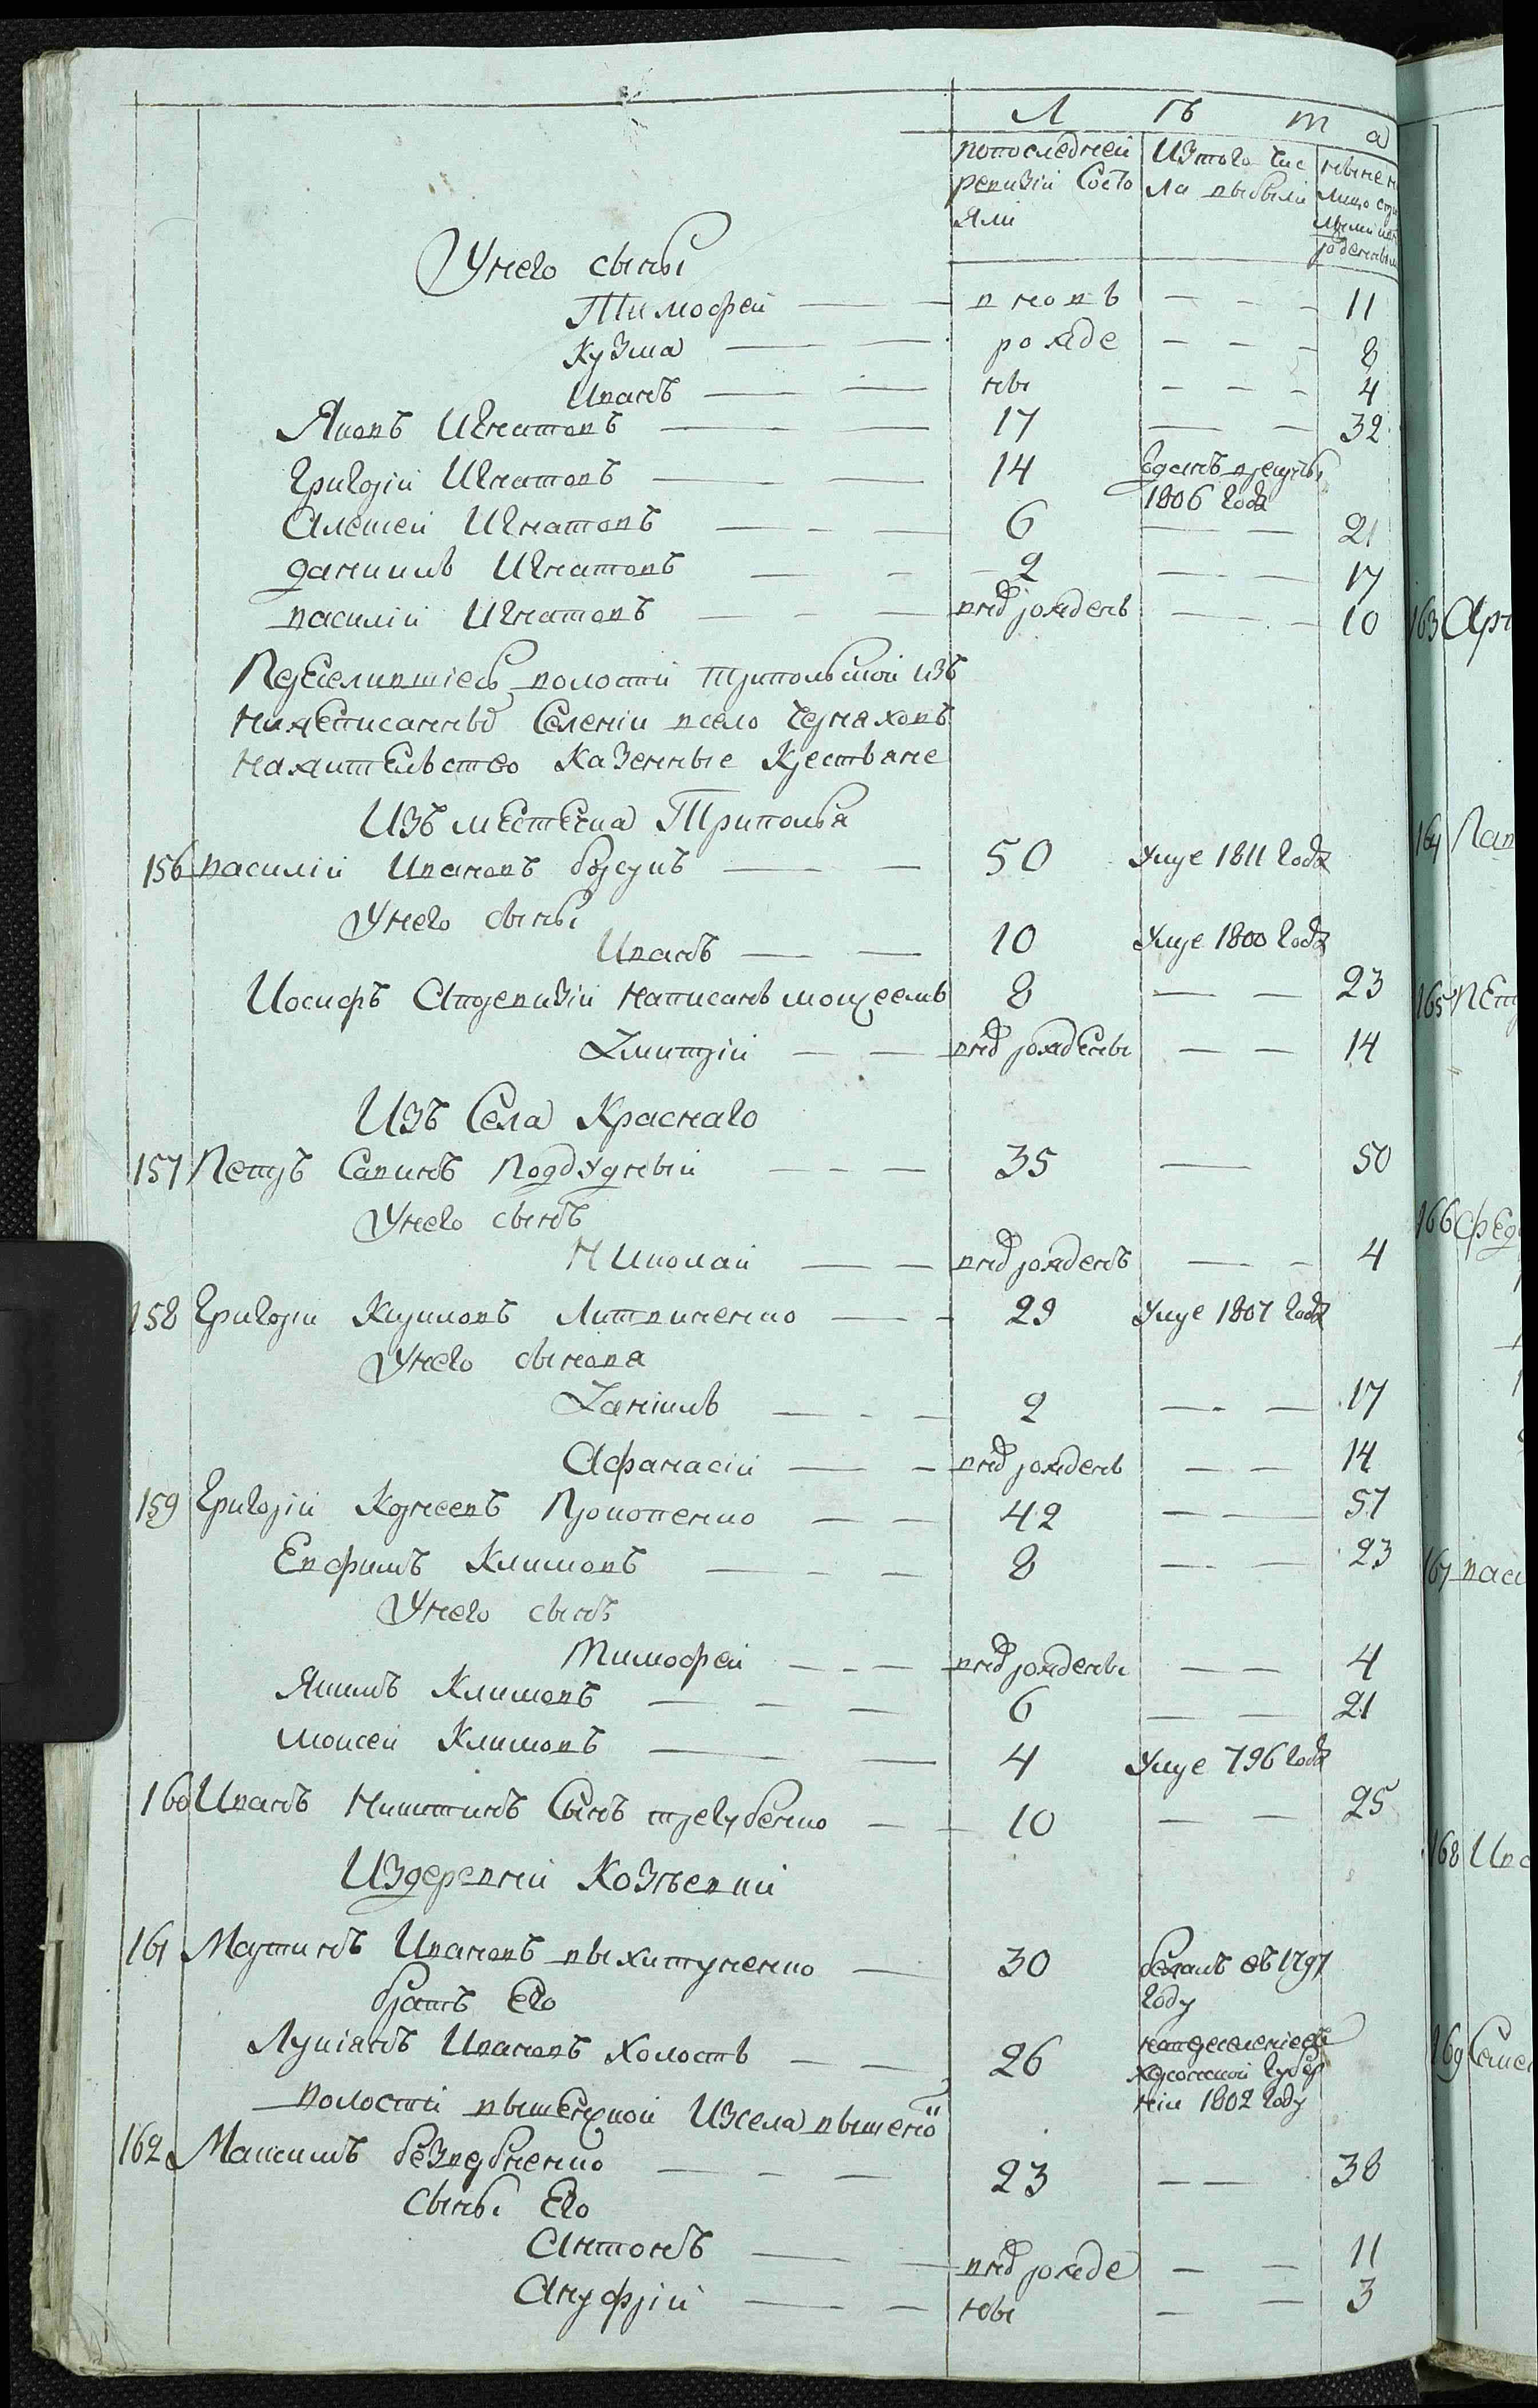 Л ѣ т а
попоследней Изтого чис
ревизіи Состо ла выбыли
яли
Унего сыны
Тимофей — — вновь — — — 11
Кузма — — рожде — — — 8
Иванъ — — ны — — — 4
Яковъ Игнатовъ — — 17 — — 32
Григорій Игнатовъ — — 14 Зданъ врекруты
1806 года
Алексей Игнатовъ — — — 6 — — 21
данилъ Игнатовъ — — 2 — — 17
василій Игнатовъ — — — внов рожденъ — — 10
Переселившіесь волости Трипольской изъ
нижеписанныхъ Селеніи всело Черняховъ
нажительство Казенные Крестьяне
Изъ местечка Триполья
156 василій Ивановъ боркунъ — — 50 Умре 1811 года
Унего сыны
Иванъ — — 10 Умре 1800 года
Иосифъ Апоревизіи написанъ мойсеемъ 8 — — 23
Дмитрій — — внов рождены — — 14
Изъ Села Краснаго
157 Петръ Савинъ Поддубный — — — 35 — 50
Унего сынъ
Николай — — внов рожденъ — — 4
158 Григорій Кириловъ Литвиненко — — 29 Умре 1807 года
Унего сыновя
Даніилъ — — — 2 — — 17
Афанасій — — внов рожденъ — — 14
159 Григорій Корнеевъ Прокопенко — — 42 — — 57
Евфимъ Климовъ — — — 8 — — 23
Унего сынъ
Тимофей — — — внов рождены — — 4
Якимъ Климовъ — — — 6 — — 21
Моисей Климовъ — — 4 Умре 796 года
160 Иванъ Никитинъ Сынъ трегубенко — — 10 — — 25
Издеревни Козіевки
161 Мартинъ Ивановъ выхитуненко — 30 бежалъ въ 1797
году
братъ Его
Лукіянъ Ивановъ холостъ — — 26
херсонской Губер
ніи 1802 году
волости вышенской Изсела
162 Максимъ безвербненко — — — 23 — — 38
сыны Его
Антонъ — — внов рожде — — 11
Ануфрій — — ны — — 3
163
164
165
166
167
168
169